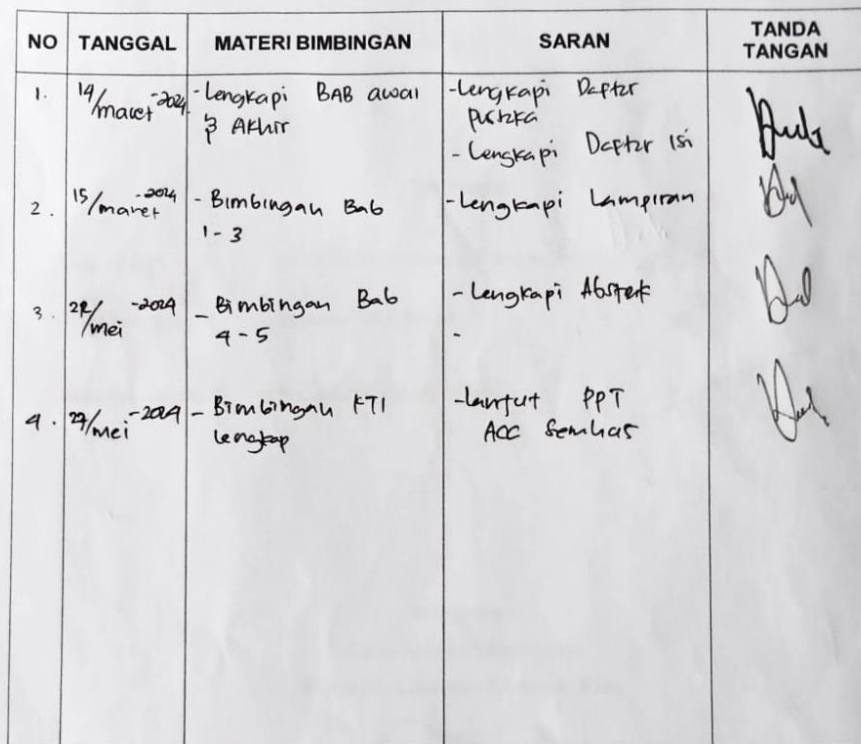 NO TANGGAL MATERI BIMBINGAN SARAN TANDA TANGAN
1. 14/maret-2024 -Lengkapi BAB awal -Lengkapi Daftar
& Akhir pustka
-Lengkapi Daftar Isi
2. 15/maret-2024 - Bimbingan Bab -Lengkapi Lampiran
1-3
3. /mei-2024 - Bimbingan Bab - Lengkapi Abstrak
4-5 -
4. 27/mei-2024 - Bimbingan KTI -Lanjut PPT
Lengkap ACC Semhas